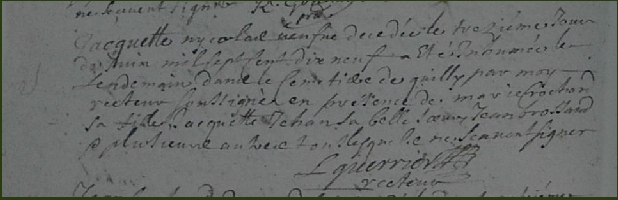 ne scavent signer
Jacquette nycolas veufve decedée le trezieme Jour
de Juin mil sept sent dix neuf a Eté Inhumée le
Lendemain dans le Cemetiere de quilly par moy
recteur soussigné en presence de marie frochard
sa fille Jacquette Jehan sa belle soeur Jean brossaud
& plusieurs autres tous lesquels ne scavent signer
L guerrier
recteur